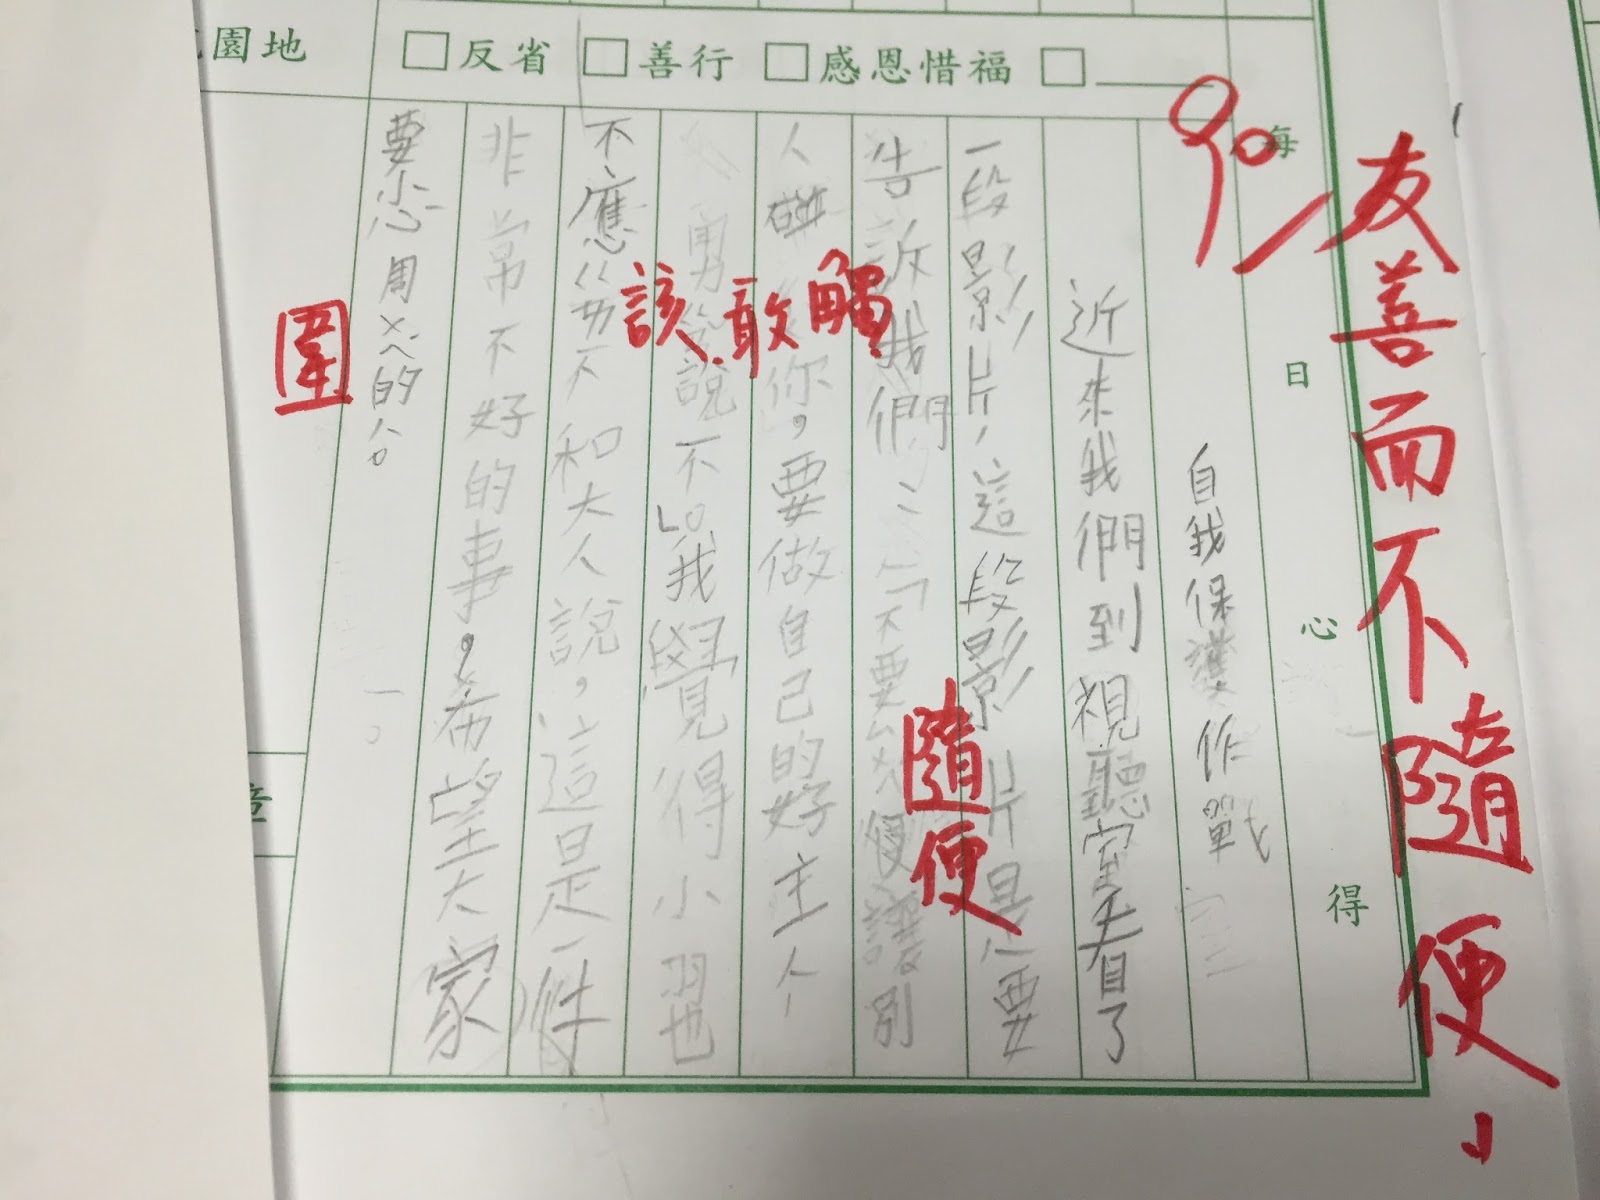 園地
□反省 □善行 □感恩惜福 □
每日心得
90
友善而不隨便」
自我保護作戰
近來我們到視聽室看了
一段影片,這段影片是要
告訴我們:「不要ㄙㄨㄟˊ便讓別
隨便
人碰 你,要做自己的好主人
觸
勇 說不」。我覺得小 也
敢
不應ㄍㄞ不和大人說,這是一件
該
非常不好的事。希望大家
要小心周ㄨㄟˊ的人。
圍